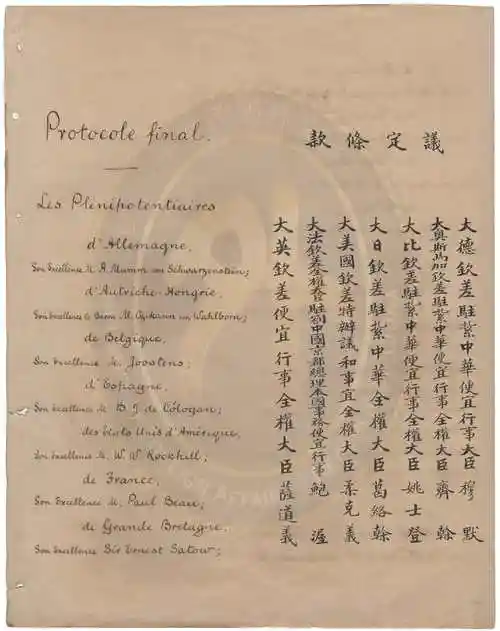 Protocole final.
Les Plénipotentiaires
d'Allemagne,
Son Excellence M. A. Mumm von Schwarzenstein;
d'Autriche-Hongrie,
Son Excellence le Baron M. Czikann von Wahlborn;
de Belgique,
Son Excellence M. Joostens;
d'Espagne,
Son Excellence M. B. J. de Cólogan;
des Etats Unis d'Amérique,
Son Excellence M. W. W. Rockhill;
de France,
Son Excellence M. Paul Beau;
de Grande Bretagne,
Son Excellence Sir Ernest Satow;
議定條款
大德欽差駐紮中華便宜行事大臣穆默
大奧斯馬加欽差駐紮中華便宜行事全權大臣齊幹
大比欽差駐紮中華便宜行事全權大臣姚士登
大日欽差駐紮中華全權大臣葛絡幹
大美國欽差特辦議和事宜全權大臣柔克義
大法欽差全權大臣駐劄中國京都總理本國事務便宜行事鮑渥
大英欽差便宜行事全權大臣薩道義